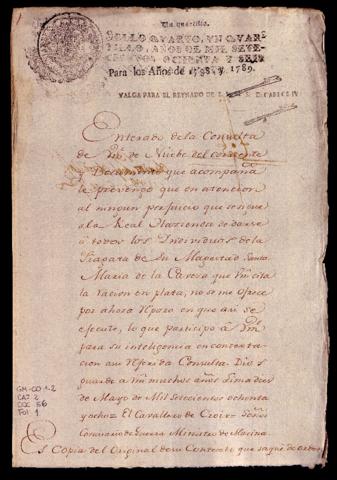 Un quartillo.
SELLO QVARTO, VN QVAR-
TILLO, AÑOS DE MIL SETE-
CIENTOS OCHENTA Y SEIS
Para los Años de 1788. y 1789.
VALGA PARA EL REYNADO DE S. M. D. CARLOS IV
Enterado de la Consulta
de Vm. de Nuebe del corriente
Documento que acompaña
le prevengo que en atencion
al ningun perjuicio que se sigue
a la Real Hazienda de darse
a todos los Individuos de la
Fragata de Su Magestad Santa
Maria de la Caveza que Vm. cita
la racion en plata, no se me ofrece
por ahora reparo en que asi se
execute, lo que participo a Vm
para su inteligencia en contextacion
a su referida Consulta. Dios
guarde a Vm muchos años Lima diez
de Mayo de Mil Setecientos ochenta
y ocho = El Cavallero de Croix = Señor
Comisario de Guerra Ministro de Marina.
Es Copia del Original de su Contexto que saqué de orden
GM-CO 1-2
CAJ. 2
DOC 56
FOL 1